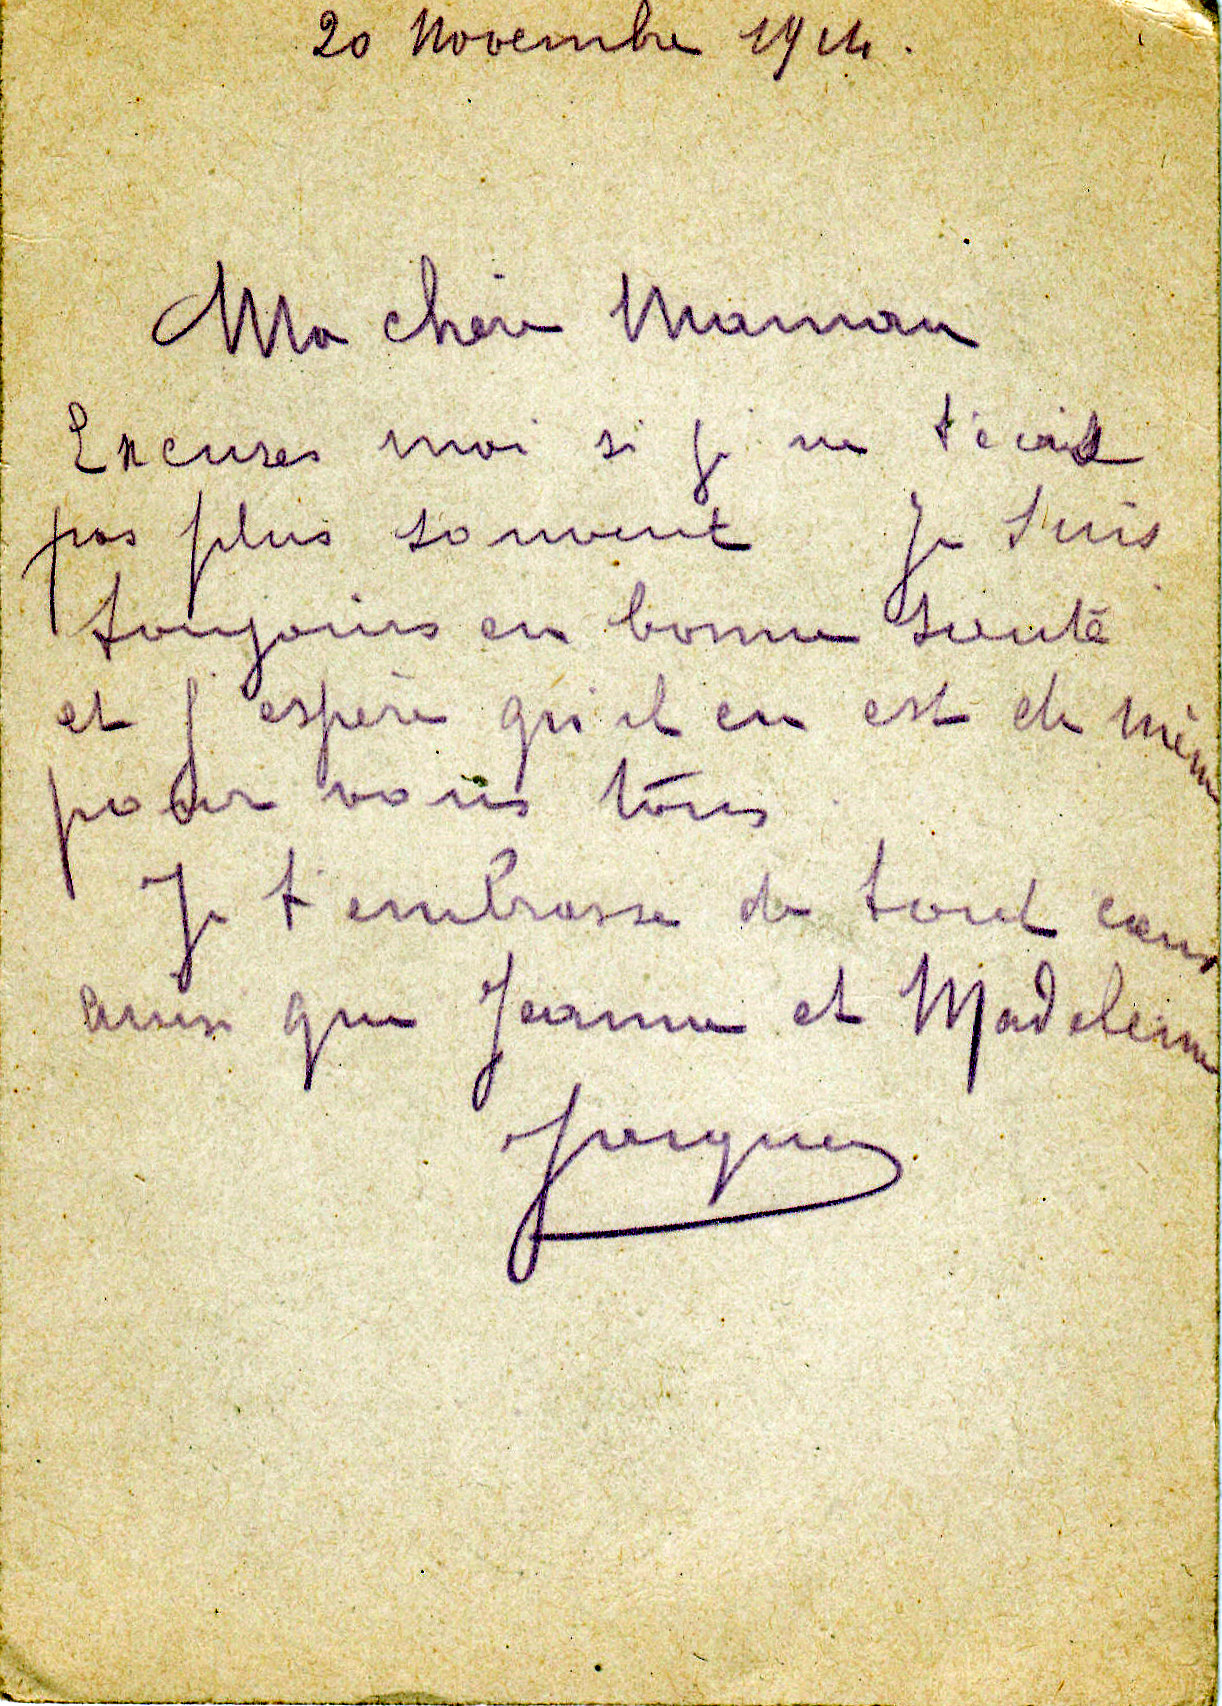 20 Novembre 1914.
Ma chère Maman
Excuses moi si je ne t'écris
pas plus souvent Je suis
toujours en bonne santé
et j'espère qu'il en est de même
pour vous tous.
Je t'embrasse de tout cœur
ainsi que Jeanne et Madeleine
Jacques